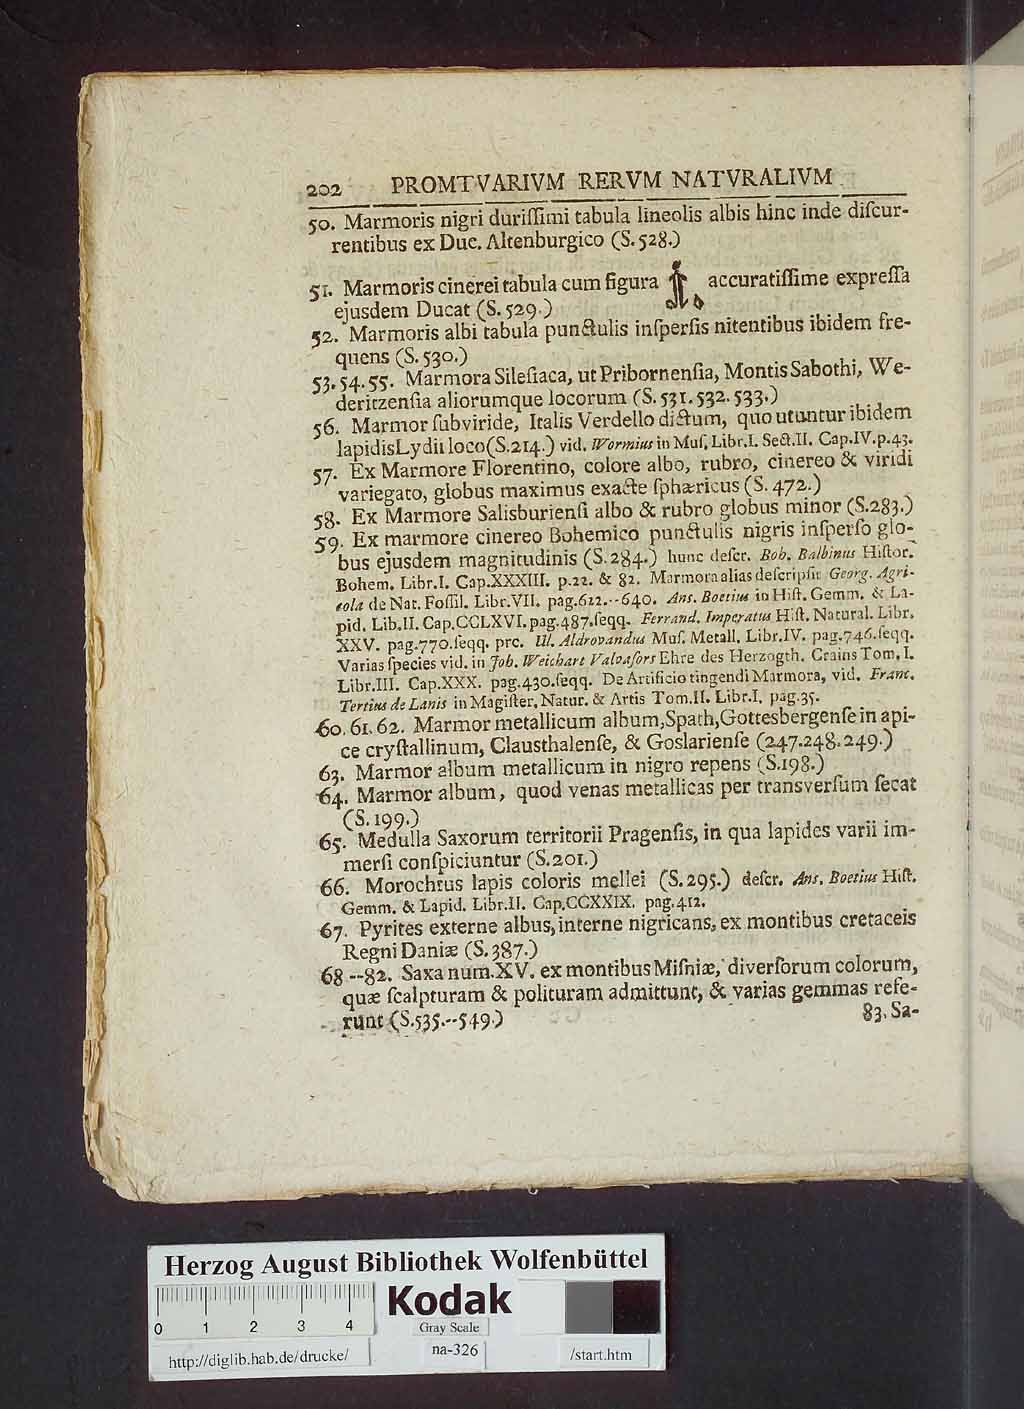 202 PROMTVARIVM RERVM NATVRALIVM
50. Marmoris nigri duriſſimi tabula lineolis albis hinc inde diſcur-
rentibus ex Duc. Altenburgico (S. 528.)
51. Marmoris cinerei tabula cum figura accuratiſſime expreſſa
ejusdem Ducat (S. 529.)
52. Marmoris albi tabula punctulis inſperſis nitentibus ibidem fre-
quens (S. 530.)
53. 54. 55. Marmora Sileſiaca, ut Pribornenſia, Montis Sabothi, We-
deritzenſia aliorumque locorum (S. 531. 532. 533.)
56. Marmor ſubviride, Italis Verdello dictum, quo utuntur ibidem
lapidis Lydii loco (S. 214.) vid. Wormius in Muſ. Libr. I. Sect. II. Cap. IV. p. 43.
57. Ex Marmore Florentino, colore albo, rubro, cinereo & viridi
variegato, globus maximus exacte ſphæricus (S. 472.)
58. Ex Marmore Salisburienſi albo & rubro globus minor (S. 283.)
59. Ex marmore cinereo Bohemico punctulis nigris inſperſo glo-
bus ejusdem magnitudinis (S. 284.) hunc deſcr. Boh. Balbinus Hiſtor.
Bohem. Libr. I. Cap. XXXIII. p. 22. & 82. Marmora alias deſcripſit Georg. Agri-
cola de Nat. Foſſil. Libr. VII. pag. 622.--640. Ans. Boetius in Hiſt. Gemm. & La-
pid. Lib. II. Cap. CCLXVI. pag. 487. ſeqq. Ferrand. Imperatus Hiſt. Natural. Libr.
XXV. pag. 770. ſeqq. prc. Ul. Aldrovandus Muſ. Metall. Libr. IV. pag. 746. ſeqq.
Varias ſpecies vid. in Joh. Weichart Valvaſors Ehre des Herzogth. Crains Tom. I.
Libr. III. Cap. XXX. pag. 430. ſeqq. De Artificio tingendi Marmora, vid. Franc.
Tertius de Lanis in Magiſter. Natur. & Artis Tom. II. Libr. I. pag. 35.
60. 61. 62. Marmor metallicum album, Spath, Gottesbergenſe in api-
ce cryſtallinum, Clausthalenſe, & Goslarienſe (247. 248. 249.)
63. Marmor album metallicum in nigro repens (S. 198.)
64. Marmor album, quod venas metallicas per transverſum ſecat
(S. 199.)
65. Medulla Saxorum territorii Pragenſis, in qua lapides varii im-
merſi conſpiciuntur (S. 201.)
66. Morochtus lapis coloris mellei (S. 295.) deſcr. Ans. Boetius Hiſt.
Gemm. & Lapid. Libr. II. Cap. CCXXIX. pag. 412.
67. Pyrites externe albus, interne nigricans, ex montibus cretaceis
Regni Daniæ (S. 387.)
68 --82. Saxa num. XV. ex montibus Miſniæ, diverſorum colorum,
quæ ſcalpturam & polituram admittunt, & varias gemmas refe-
runt (S. 535.--549.)
83. Sa-
Herzog August Bibliothek Wolfenbüttel
Kodak
0 1 2 3 4
Gray Scale
http://diglib.hab.de/drucke/ na-326 /start.htm